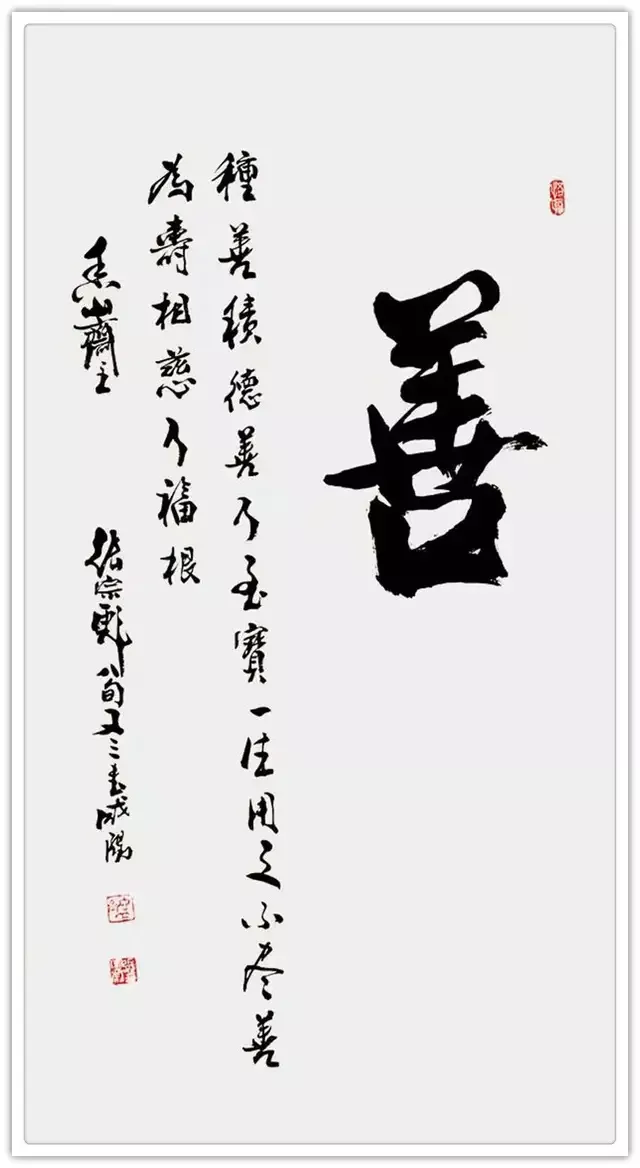 善
種善積德善乃至寶一生用之不尽善
為壽相慈乃福根
山齋主
張宗彪八旬又三書咸陽